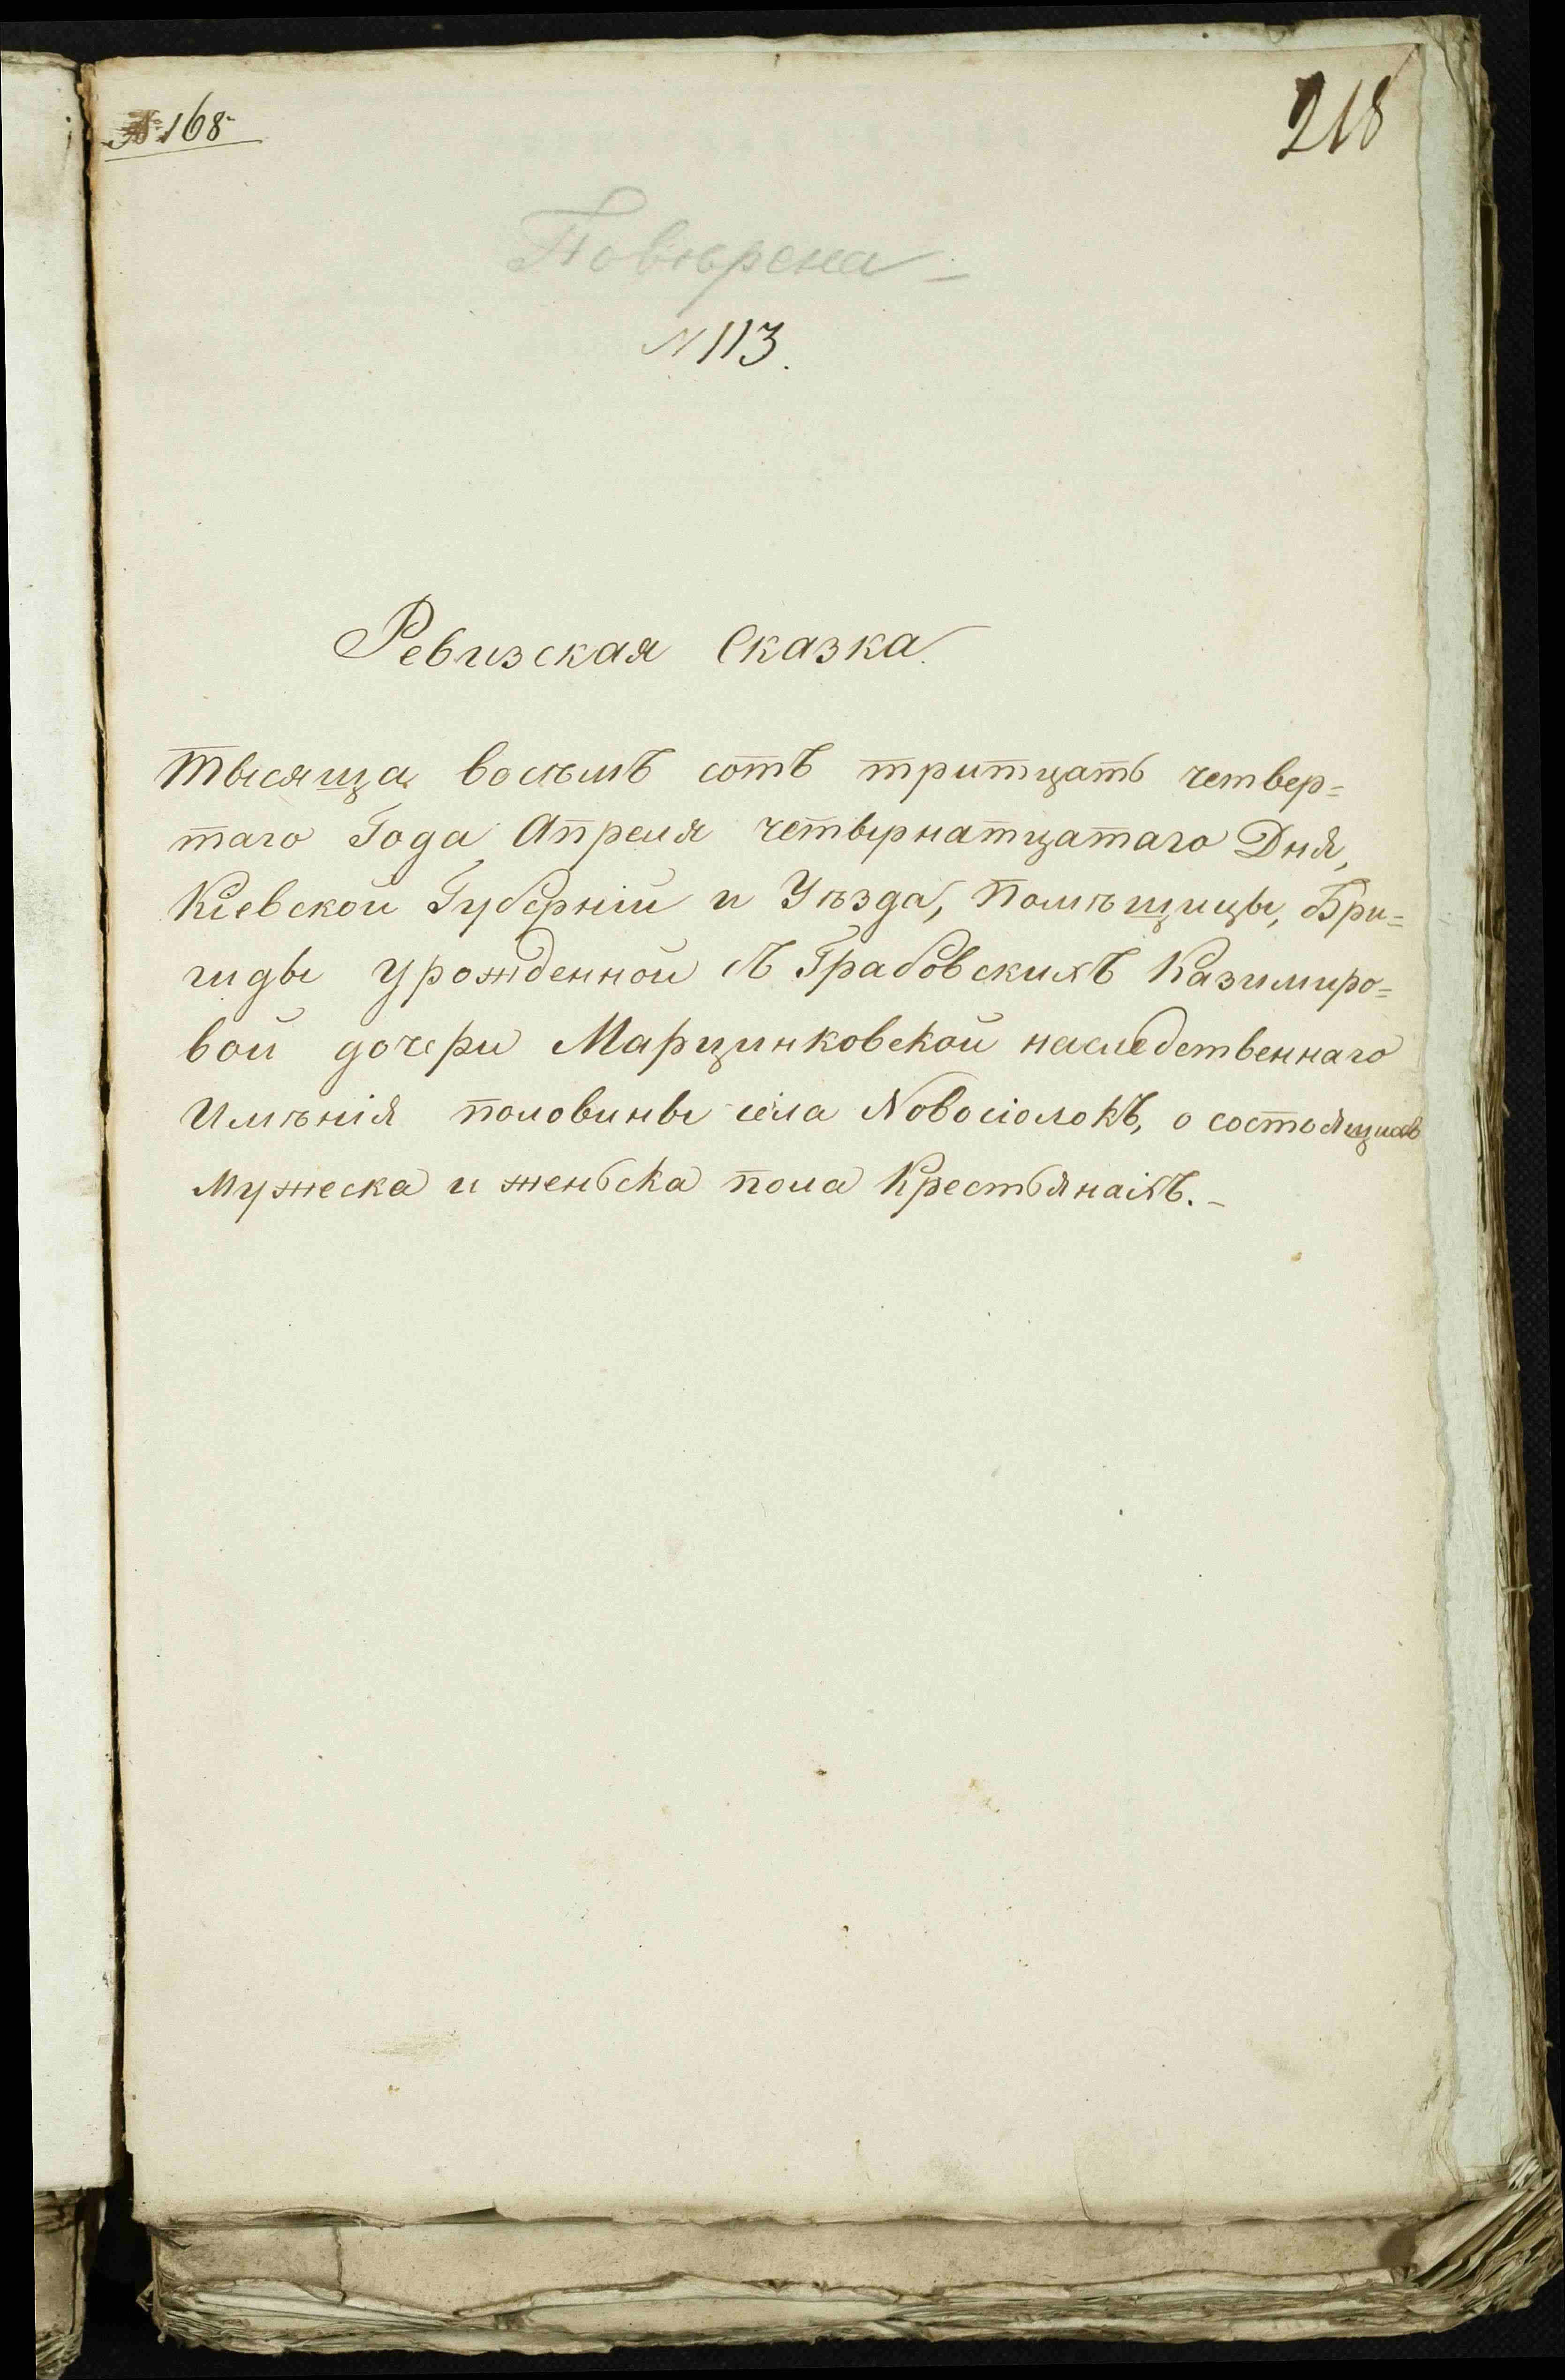 № 168
218
Повѣрена
N 113.
Ревизская Сказка.
Тысяща восѣмъ сотъ тритцать четвер=
таго Года Апреля четвернатцатаго Дня,
Кіевской Губерніи и Уѣзда, Помѣщицы, Бри=
гиды урожденной съ Грабовскихъ Казимиро=
вой дочери Марцинковской наследственнаго
Имѣнія половины села Новосіолокъ, о состоящихъ
Мужеска и женьска пола Крестьянахъ.